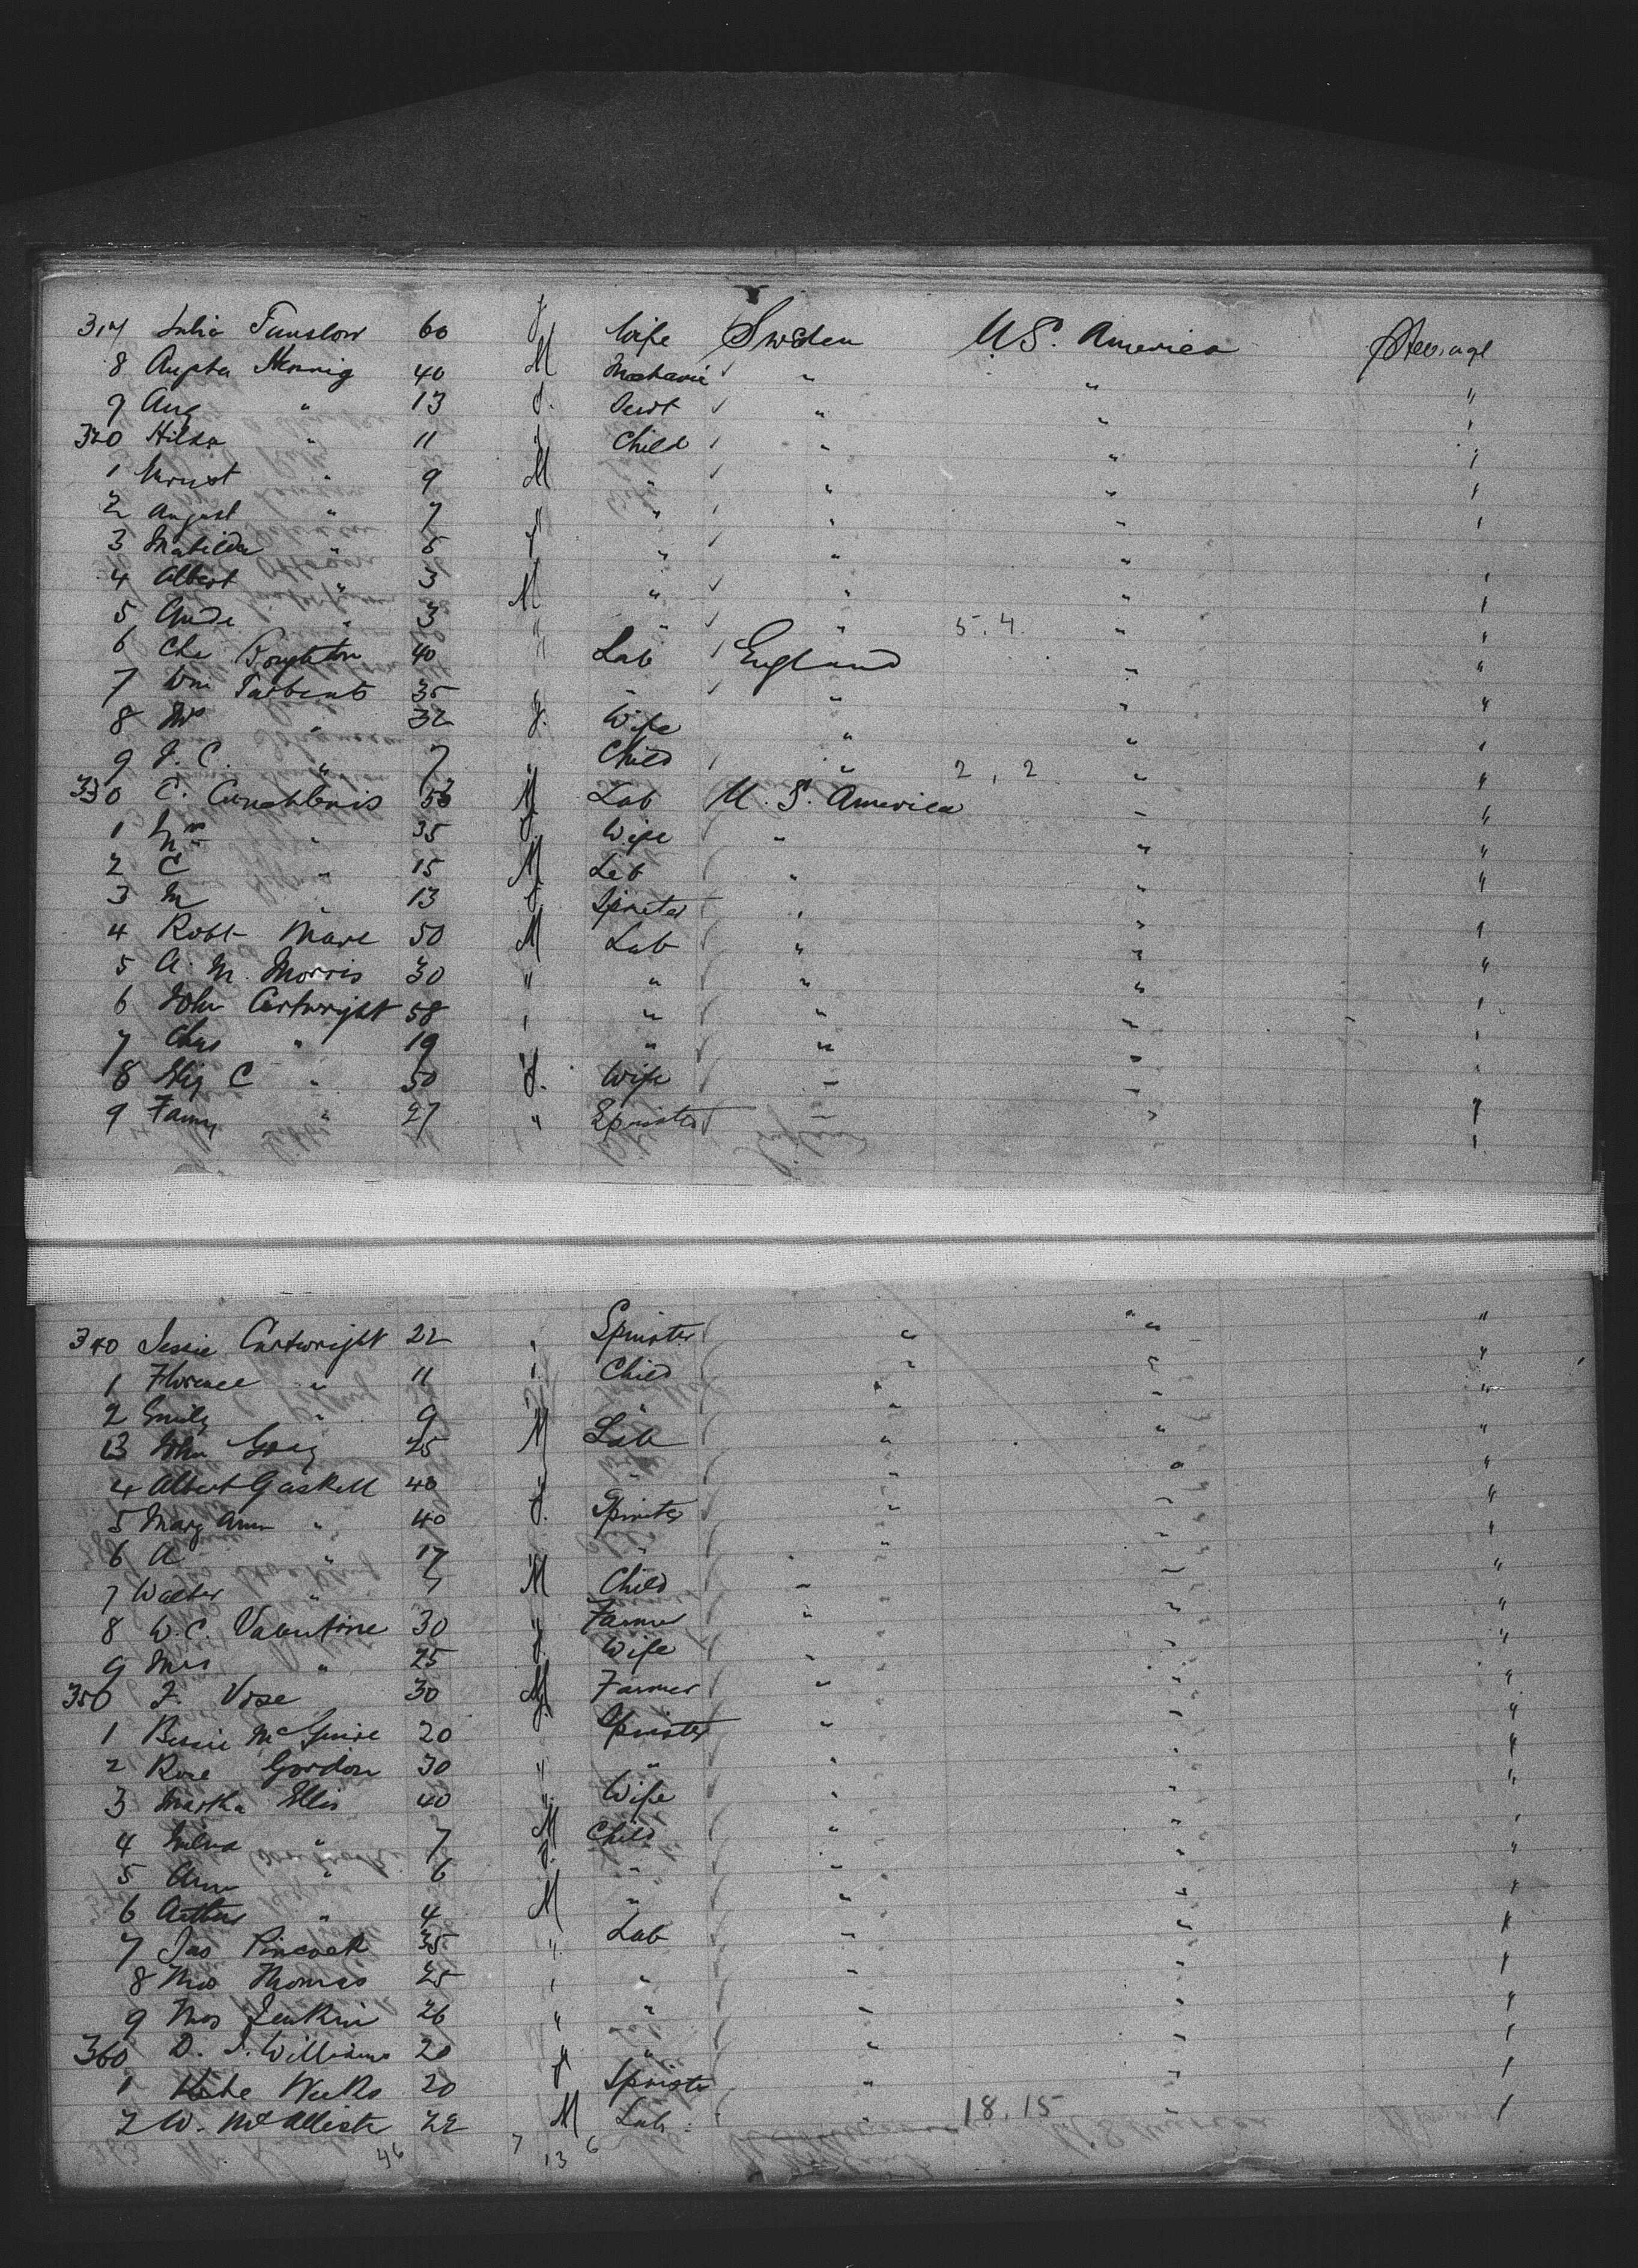 317 Julia Tanslow 60 f Wife Sweden U.S. America Steerage
8 Augsta Hennig 40 M Mechanic " " "
9 Aug " 13 f. " " "
320 Hilda " 11 f Child " " "
1 Ernst " 9 M " " " "
2 August " 7 " " " " "
3 Matilda " 5 f " " " "
4 Albert " 3 M " " " "
5 " 3 " " " 5.4. " "
6 Chs Boughton 40 " Lab England " "
7 Wm Tarbents 35 " " " " "
8 Mrs " 32 f. Wife " " "
9 J. C. " 7 " Child " 2, 2 " "
330 C. 53 M Lab U. S. America " "
1 " 35 f. Wife " " "
2 C " 15 M Lab " " "
3 M " 13 f Spinster " " "
4 Robt Mare 50 M Lab " " "
5 A. M. Morris 30 " " " " "
6 John Cartwright 58 " " " " "
7 Chas " 19 " " " " "
8 Eliz C " 50 f. Wife " " "
9 Fanny " 27 " Spinster " " "
340 Jessie Cartwright 22 " Spinster " " "
1 Florence " 11 " Child " " "
2 Emily " 9 " " " " "
3 John Gray 25 M Lab " " "
4 Albert Gaskell 40 " " " " "
5 Mary Ann " 40 f. Spinster " " "
6 A " 17 " " " " "
7 Walter " 7 M Child " " "
8 W. C. Valentine 30 " Farmer " " "
9 Mrs " 25 f. Wife " " "
350 F. Vose 30 M Farmer " " "
1 Bessie McGuire 20 f Spinster " " "
2 Rose Gordon 30 " " " " "
3 Martha Ellis 40 " Wife " " "
4 " 7 M Child " " "
5 Ann " 6 f. " " " "
6 Arthur " 4 M " " " "
7 Jas Pincock 35 " Lab " " "
8 Thos Thomas 25 " " " " "
9 Thos Jenkin 26 " " " " "
360 D. J. Williams 20 " " " " "
1 Kate Weeks 20 f Spinster " " "
2 W. McAllister 22 M Lab " 18.15 " "
46 7 13 6